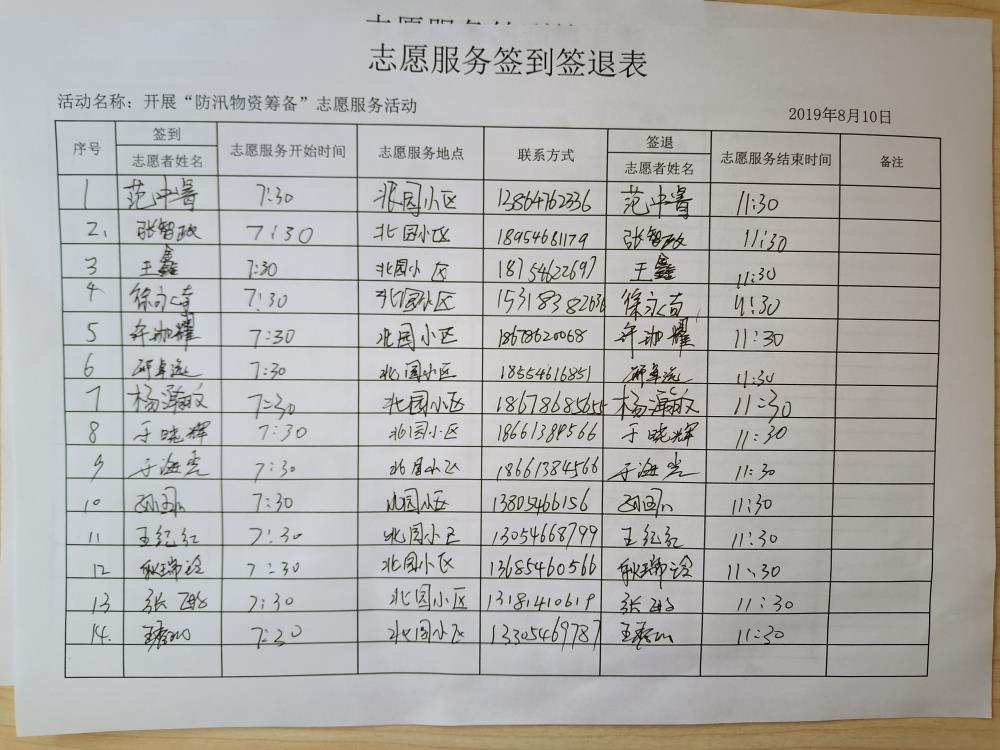 志愿服务签到签退表
活动名称：开展“防汛物资筹备”志愿服务活动
2019年8月10日
序号 签到 志愿者姓名 志愿服务开始时间 志愿服务地点 联系方式 签退 志愿者姓名 志愿服务结束时间 备注
1 7:30 北园小区 13864762336 11:30
2. 张智政 7:30 北园小区 18954681179 张智政 11:30
3 王鑫 7:30 北园小区 18754622697 王鑫 11:30
4 徐永奇 7:30 北园小区 徐永奇 11:30
5 7:30 北园小区 18678620068 11:30
6 7:30 北园小区 18554616851 11:30
7 杨瀛政 7:30 北园小区 杨瀛政 11:30
8 于晓辉 7:30 北园小区 18661384566 于晓辉 11:30
9 于海光 7:30 北园小区 18661384566 于海光 11:30
10 7:30 北园小区 13805466156 11:30
11 王红红 7:30 北园小区 13054668799 王红红 11:30
12 耿瑞玲 7:30 北园小区 13685460566 耿瑞玲 11:30
13 张 7:30 北园小区 13181410619 张 11:30
14. 7:30 北园小区 13305469787 11:30